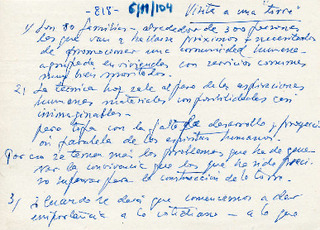 -818- 6/11/104 Visita a una "torre"
1) Son 80 familias - alrededor de 300 personas
los que van a hacerse próximos y necesitados
de promocionar una comunidad humana
agrupada en viviendas con servicios comunes
muy bien montados.
2) La técnica hoy sale al paso de las aspiraciones
humanas materiales con posibilidades casi
inimaginables.
pero topa con la falta de desarrollo y
paralela de los espíritus humanos.
Por eso se temen más los problemas que ha de generar
la convivencia que los que ha sido preciso
superar para la construcción de la torre.
3) Cuando se dará que comencemos a dar
importancia a lo cotidiano - a lo que